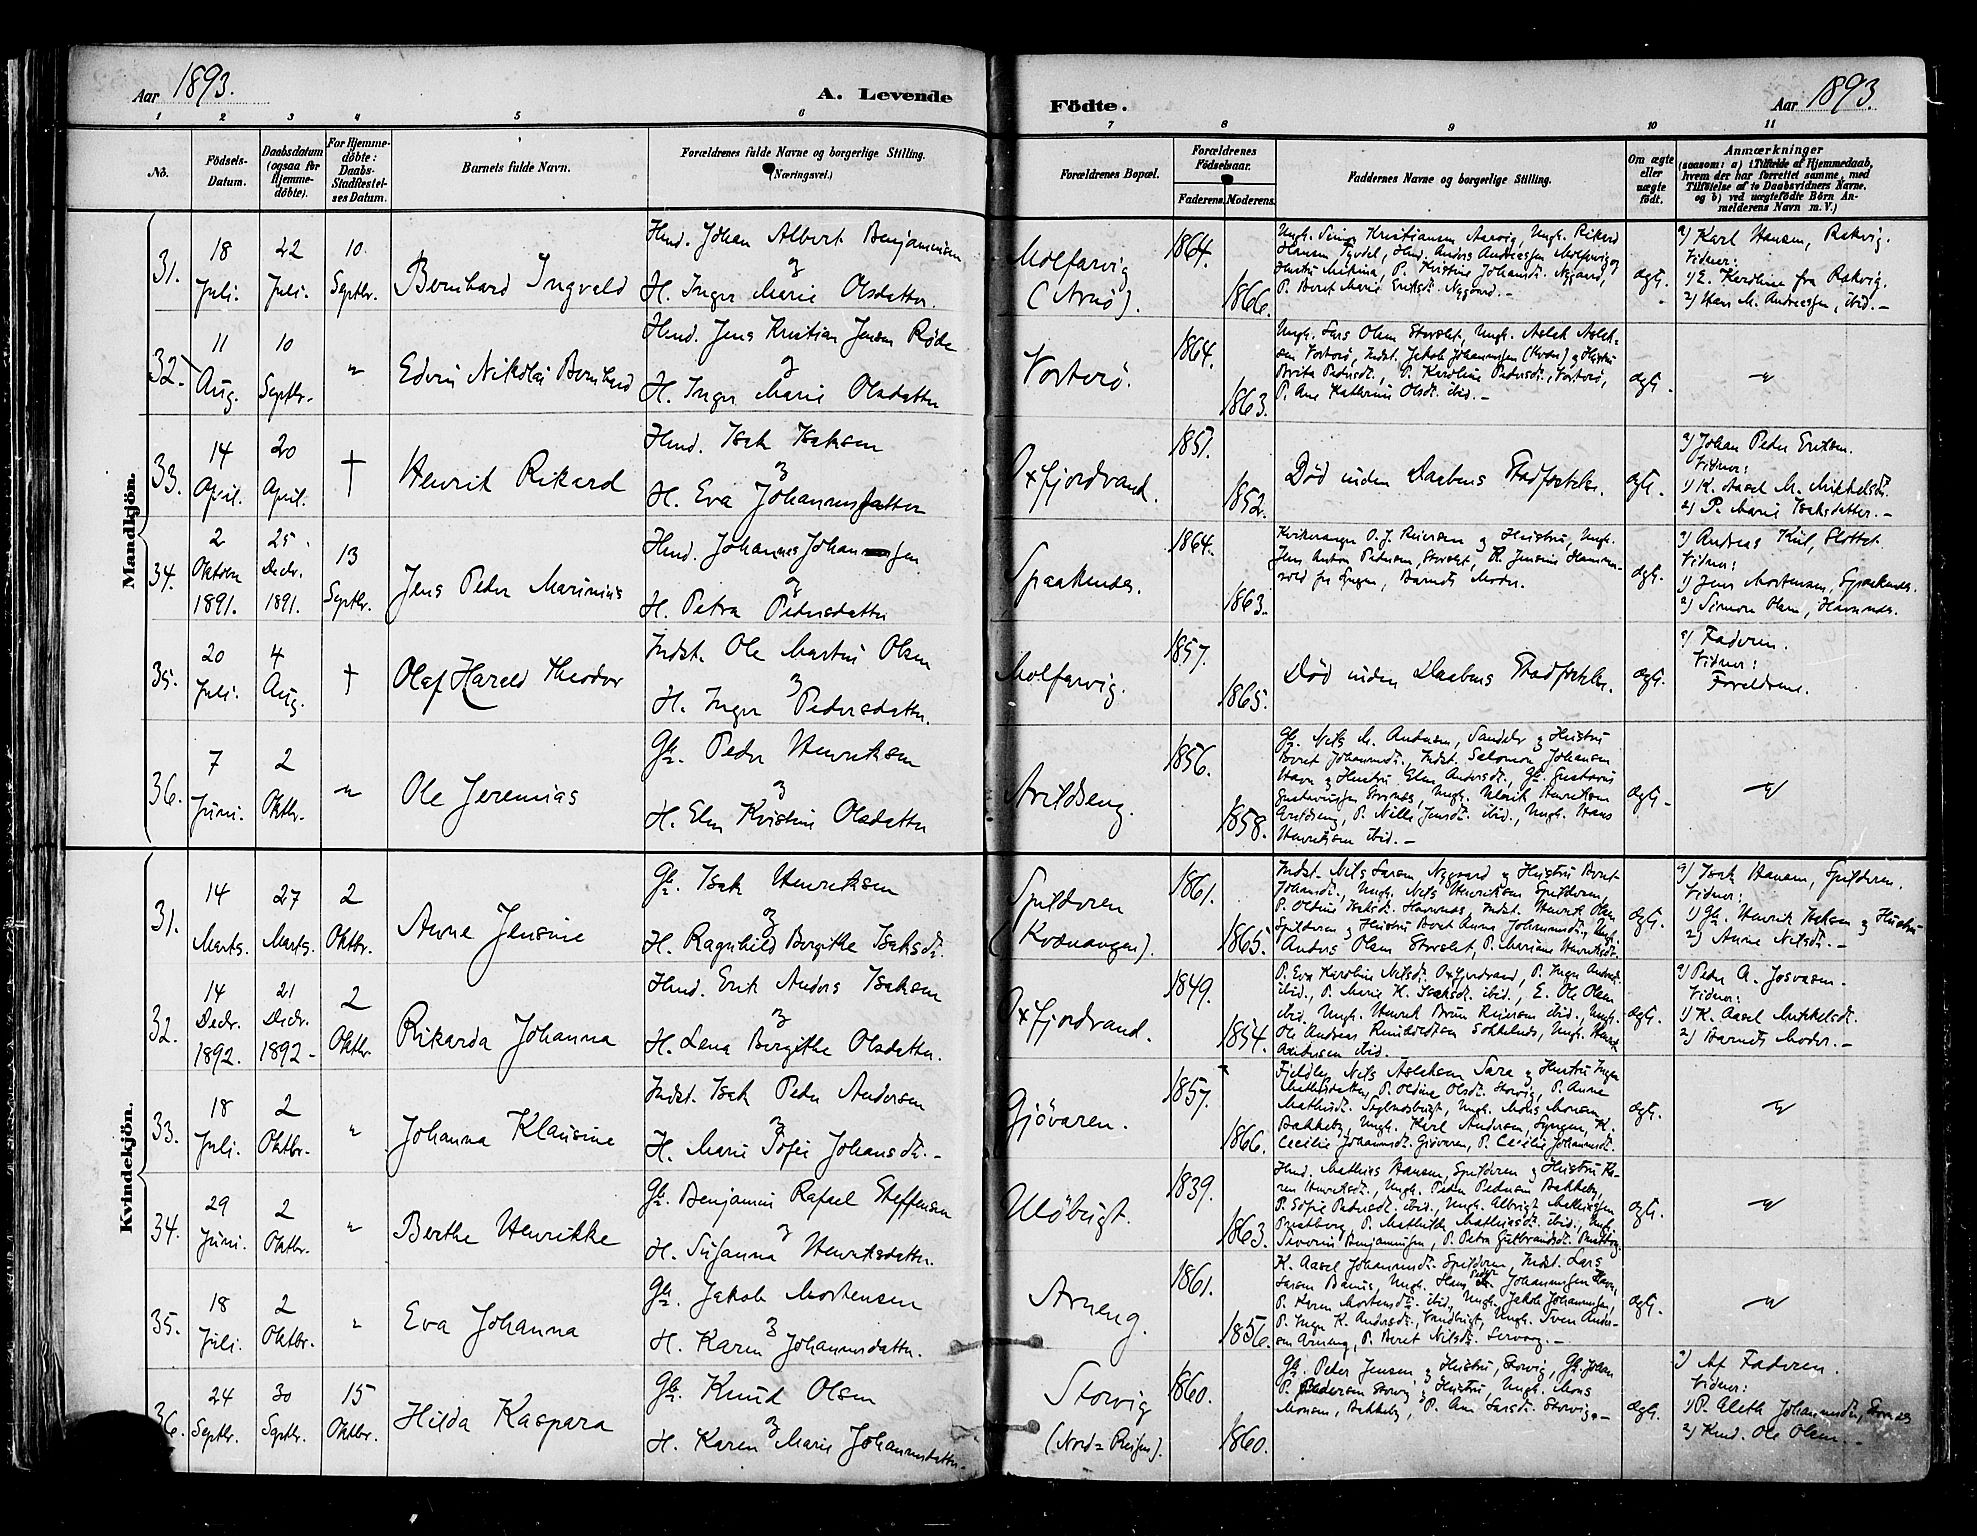 Aar 1893.
A. Levende
Födte.
Aar 1893.
1 2 3 4 5 6 7 8 9 10 11
No.
Födsels-
Datum.
Daabsdatum
(ogsaa for
Hjemme-
döbte).
For Hjemme-
döbte:
Daabs-
Stadfæstel-
ses Datum.
Barnets fulde Navn.
Forældrenes fulde Navne og borgerlige Stilling.
(Næringsvei.)
Forældrenes Bopæl.
Forældrenes
Födselsaar.
Faderens. Moderens.
Faddernes Navne og borgerlige Stilling.
Om ægte
eller
uægte
født.
Anmærkninger
(saasom: a) i Tilfælde af Hjemmedaab,
hvem der har forrettet samme, med
Tilföielse af to Daabsvidners Navne,
og b) ved uægtefödte Börn An-
melderens Navn m. V.)
Mandkjön.
31.
18
Juli.
22
Juli.
10.
Septbr.
Bernhard Ingvald
Hmd. Johan Albert Benjaminsen
og
H. Inger Marie Olsdatter
Molfarvig
(Arnö).
1864.
1866.
Hansen
P. Beret Marie Eriksdt. Nygaard.-
ægt.
a) Karl Hansen, Rakvig.
Vidner:
1) E. Karoline fra Rakvig.
2) Hans M. Andreassen, ibid.-
32.
11
Aug.
10
Septbr.
"
Edvin Nikolai Bernhard
Hmd. Jens Kristian Jensen
og
H. Inger Marie Olsdatter
Vorterö.
1864.
1863.
Ungk. Lars Olsen Storslet, Ungk. Aslak Aslak-
sen Vorterö, Indst. Jakob Johannessen (Kvæn) og Hustru
Brita Pedersdt., P. Karoline Pedersdt., Vorterö,
P. Ane Katherine Olsdt. ibid.-
ægt.
"
33.
14
April.
20
April.
†
Henrik Rikard
Hmd. Isak Isaksen
og
H. Eva Johannesdatter
Oxfjordvand.
1851.
1852.
Död inden Daabens Stadfæstelse.
ægt.
a) Johan Peder Eriksen.
Vidner:
1) K. Aasel M. Mikkelsdt.
2) P. Marie Isaksdatter.-
34.
2
Oktober
1891.
25
Decbr.
1891.
13
Septbr.
Jens Peder Marinius
Hmd. Johannes Johannessen.
og
H. Petra Pedersdatter
Spaakenes.
1864.
1863.
O. J. Reiersen og Hustru, Ungk.
Jens Anton Pedersen, Storslet, P. Jensine
fra Lyngen, Barnets Moder.
ægt.
a) Andreas Kiil, Slottet.
Vidner:
1) Jens Mortensen, Spaakenes.
2) Simon Olsen, Havnnes.
35.
20
Juli.
4
Aug.
†
Olaf Harald Theodor
Indst. Ole Martin Olsen
og
H. Inger Pedersdatter.
Molfarvig.
1857.
1865.
Död inden Daabens Stadfæstelse.
ægt.
a) Faderen.
Vidner:
Forældrene.
36.
7
Juni.
2
Oktbr.
"
Ole Jeremias
Gbr. Peder Henriksen
og
H. Elen Kristine Olsdatter
Arildseng.
1856.
1858.
Gbr. Nils M. Andersen, og Hustru
Beret Johannesdt., Indst. Salomon Johansen
Havn og Hustru Elen Andersdt., Gbr. Gustavus
Ungk. Ulrik Henriksen
Arildseng, P. Nille Jensdt. ibid., Ungk. Hans
Henriksen ibid.-
ægt.-
"
Kvindekjön.
31.
14
Marts.
27
Marts.
2
Oktbr.
Anne Jensine
Gbr. Isak Henriksen
og
H. Ragnhild Bergithe Isaksdt.
Spilderen
(Kvænangen).
1861.
1865.
Indst. Nils Larsen, Nygaard og Hustru Beret
Johansdt., Ungk. Nils Henriksen Spilderen,
P. Oldine Isaksdt. Havnnes, Indst. Henrik Olsen
Spilderen og Hustru Beret Anna Johannesdt., Ungk.
Anders Olsen Storslet, P. Mariane Henriksdt.
ægt.
a) Isak Hansen, Spilderen.
Vidner:
1) Gbr. Henrik Isaksen og Hustru
2) Anne Nilsdt.-
32.
14
Decbr.
1892.
21
Decbr.
1892-
2
Oktbr.
Rikarda Johanna
Hmd. Erik Anders Isaksen
og
H. Lena Bergithe Olsdatter.
Oxfjordvand.
1849.
1854.
P. Eva Karoline Nilsdt. Oxfjordvand, P. Inger Andersdt.
ibid., P. Marie K. Isaksdt. ibid., E. Ole Olsen
ibid., Ungk. Henrik Brun Reiersen ibid., Ungk.
Ole Andreas Reinholdtsen Sokkelnes, Ungk. Henrik
ibid.
ægt.
a) Peder A. Josvasen.
Vidner:
1) K. Aasel Mikkelsdt.
2) Barnets Moder.-
33.
18
Juli.
2
Oktbr.
"
Johanna Klausine
Indst. Isak Peder Andersen
og
H. Marie Sofie Johansdt.-
Gjövaren.
1857.
1866.
Nils Aslaksen Sara og Hustru Inger
P. Oldine Olsdt. Storvig, P. Anne
Mathisdt. Ungk. Mons Monsen,
Bakkeby, Ungk. Karl Andersen, Lyngen, K.
Cecilie Johannesdt. Gjövaren, P. Cecilie Johannesdt.
ægt.
"
34.
29
Juni.
2
Oktbr.
"
Berthe Henrikke
Gbr. Benjamin Rafael Steffensen
og
H. Susanna Henriksdatter.
Ulöbugt.
1839.
1863.
Hmd. Mathias Hansen, Spilderen og Hustru Ka-
ren Henriksdt., Ungk. Peder Pedersen Bakkeby,
P. Sofie Pedersdt. ibid., Ungk. Albrigt Mathiassen
P. Mathilde Mathiasdt. ibid., Ungk.
Severin Benjaminsen, P. Petra Gulbrandsdt.
ægt.
"
35.
18
Juli.
2
Oktbr.
"
Eva Johanna
Gbr. Jakob Mortensen
og
H. Karen Johannesdatter.
Arneng.
1861.
1856.
K. Aasel Johannesdt. Spilderen, Indst. Lars
Larsen Ungk. Hans Peder Johannessen Havn,
P. Karen Mortensdt. ibid., Ungk. Jakob Johannessen,
P. Inger K. Andersdt., Vandbugt, Ungk. Sven Ander-
sen Arneng, P. Beret Nilsdt.
ægt.
"
36.
24
Septbr.
30
Septbr.
15
Oktbr.
Hilda Kaspara
Gbr. Knud Olsen
og
H. Karen Marie Johannesdatter.
Storvig
(Nord-Reisen).
1860.
1860.
Gbr. Peder Jensen, og Hustru, Storvig, Gbr. Johan
P. Pedersen Storvig og Hustru, Ungk. Mons
Monsen, Bakkeby, P. Ane Larsdt. Storvig.-
ægt.
a) Af Faderen.
Vidner:
1) P. Aleth Johannesdt.,
2) Hmd. Ole Olsen.-